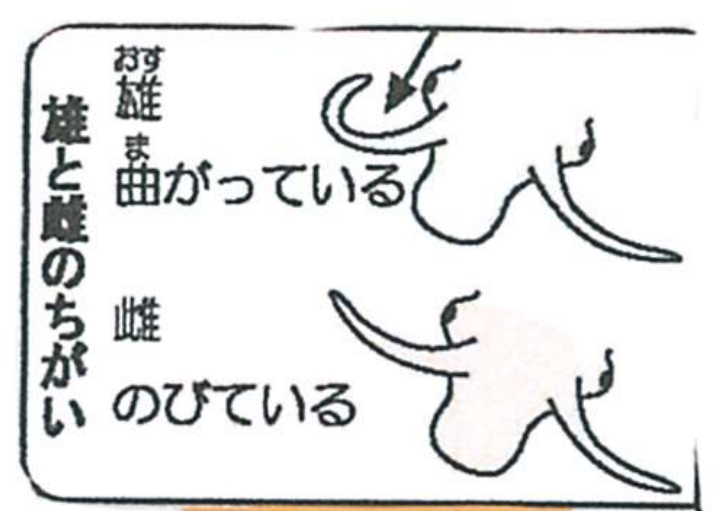 雄と雌のちがい
おす
雄
ま
曲がっている
雌
のびている